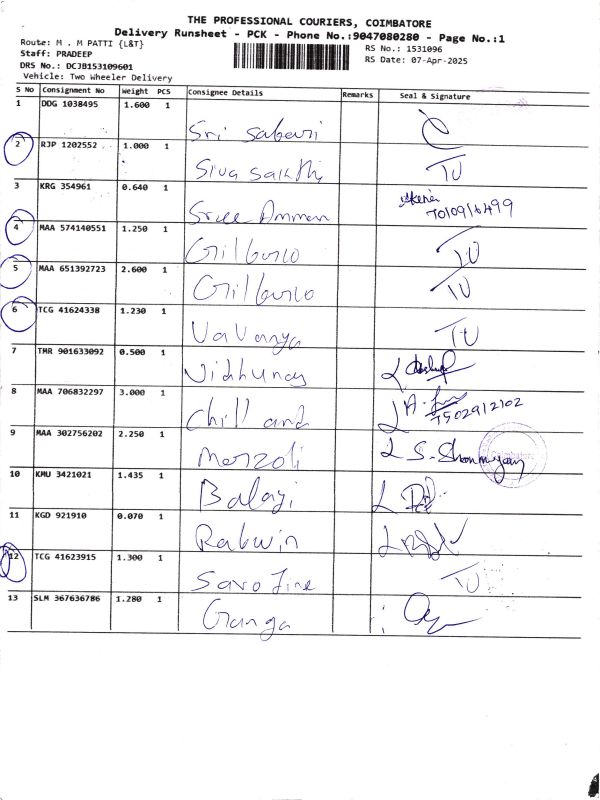 THE PROFESSIONAL COURIERS, COIMBATORE
Delivery Runsheet - PCK - Phone No.:9047080280 - Page No.:1
Route: M . M PATTI {L&T}
RS No.: 1531096
Staff: PRADEEP
RS Date: 07-Apr-2025
DRS No.: DCJB153109601
Vehicle: Two Wheeler Delivery
S No Consignment No Weight PCS Consignee Details Remarks Seal & Signature
1 DDG 1038495 1.600 1 Sri Sabari
2 RJP 1202552 1.000 1 Siva Sakthi TU
3 KRG 354961 0.640 1 Sree Amman
4 MAA 574140551 1.250 1 Gilburco TU
5 MAA 651392723 2.600 1 Gilburco TU
6 TCG 41624338 1.230 1 TU
7 TMR 901633092 0.500 1
8 MAA 706832297 3.000 1 Chill and 7502912102
9 MAA 302756202 2.250 1 Merzoli S. Shanmugam
10 KMU 3421021 1.435 1 Balaji
11 KGD 921910 0.070 1 Rakwin
12 TCG 41623915 1.300 1 TU
13 SLM 367636786 1.280 1 Ganga